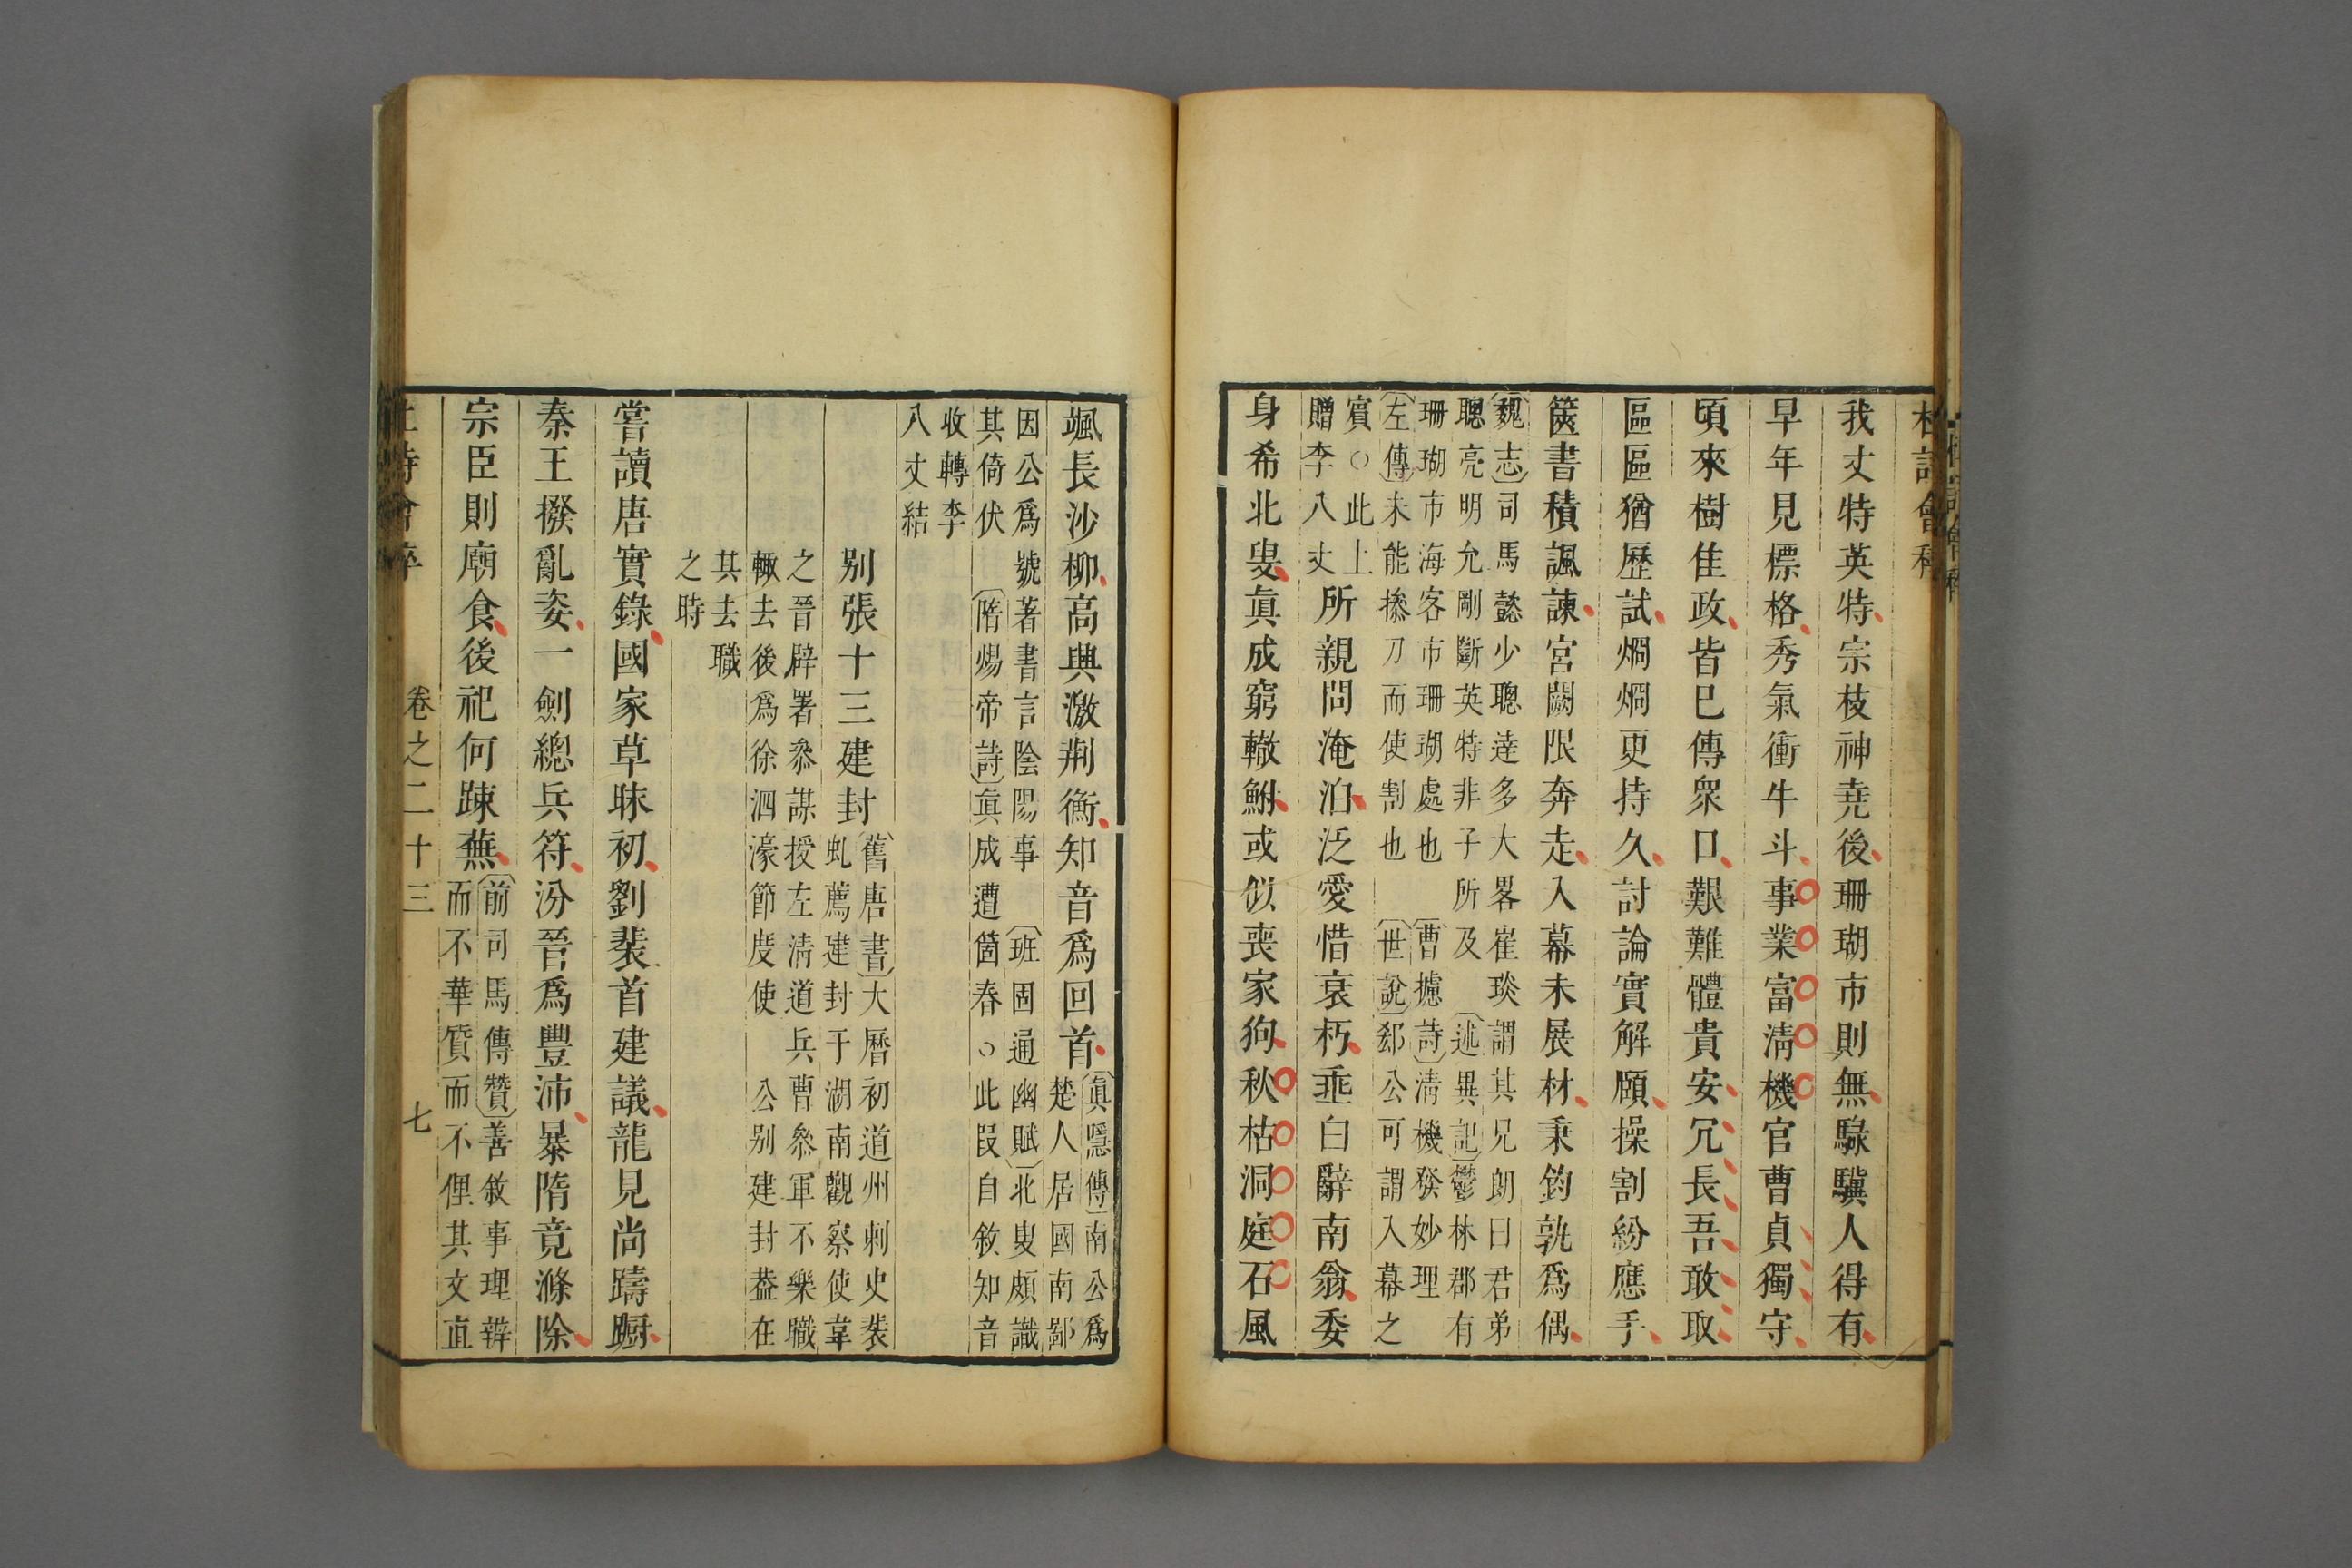 我丈特英特宗枝神堯後珊瑚市則無騄驥人得有
早年見標格秀氣衝牛斗事業富清機官曹貞獨守
頃來樹佳政皆已傳衆口艱難體貴安冗長吾敢取
區區猶歷試烱烱更持久討論實解頤操割紛應手
篋書積諷諫宮闕限奔走入幕未展材秉鈞孰爲偶
魏志司馬懿少聰達多大畧崔琰謂其兄朗曰君弟
聰亮明允剛斷英特非子所及 述異記鬱林郡有
珊瑚市海客市珊瑚處也 曹攄詩清機發妙理
左傳未能操刀而使割也 世說郄公可謂入幕之
賓○此上
贈李八丈
所親問淹泊泛愛惜衰朽乖白辭南翁委
身希北叟眞成窮轍鮒或似喪家狗秋枯洞庭石風
颯長沙柳高興激荆衡知音爲回首
眞隱傳南公爲
楚人居國南鄙
因公爲號著書言陰陽事 班固通幽賦北叟頗識
其倚伏 隋煬帝詩眞成遭箇春○此叚自敘知音
收轉李
八丈結
别張十三建封
舊唐書大曆初道州刺史裴
虬薦建封于湖南觀察使韋
之晉辟署叅謀授左清道兵曹叅軍不樂職
輙去後爲徐泗濠節度使 公别建封葢在
其去職
之時
嘗讀唐實錄國家草昧初劉裴首建議龍見尚躊蹰
秦王撥亂姿一劍總兵符汾晉爲豐沛暴隋竟滌除
宗臣則廟食後祀何踈蕪
前司馬傳贊善敘事理辯
而不華質而不俚其文直
卷之二十三 七